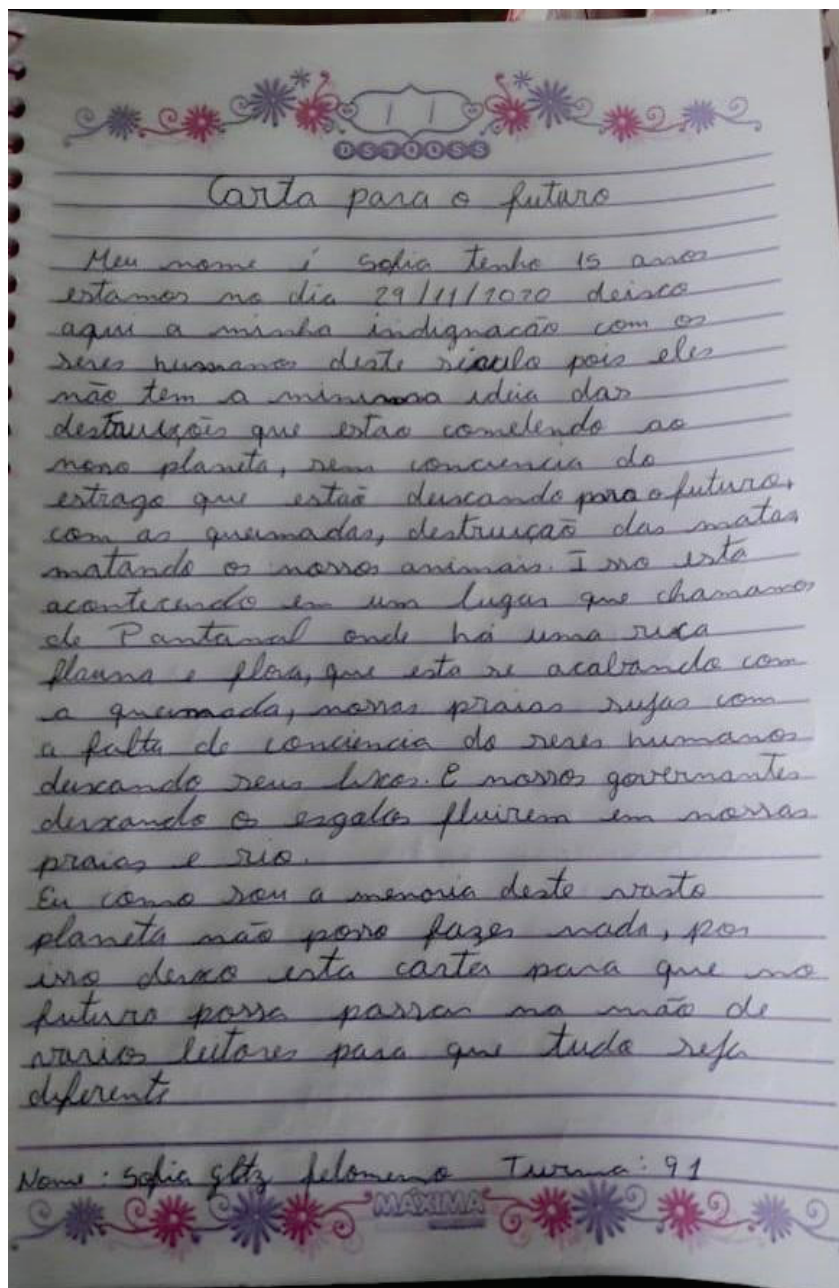 DSTQQSS
Carta para o futuro
Meu nome é Sofia tenho 15 anos
estamos no dia 29/11/2020 deixo
aqui a minha indignação com os
seres humanos deste século pois eles
não tem a minima ideia das
destruições que estao cometendo ao
nosso planeta, sem conciencia do
estrago que estaõ deixando para o futuro,
com as queimadas, destruiçaõ das matas
matando os nossos animais. Isso está
acontecendo em um lugar que chamamos
de Pantanal onde há uma rica
flauna e flora, que esta se acabando com
a queimada, nossas praias sujas com
a falta de conciencia do seres humanos
deixando seus lixos. E nossos governantes
deixando os esgotos fluirem em nossas
praias e rio.
Eu como sou a menoria deste vasto
planeta não posso fazer nada, por
isso deixo esta carta para que no
futuro possa passar na mão de
varios leitores para que tudo seja
diferente
Nome: Sofia filomeno Turma: 91
MÁXIMA